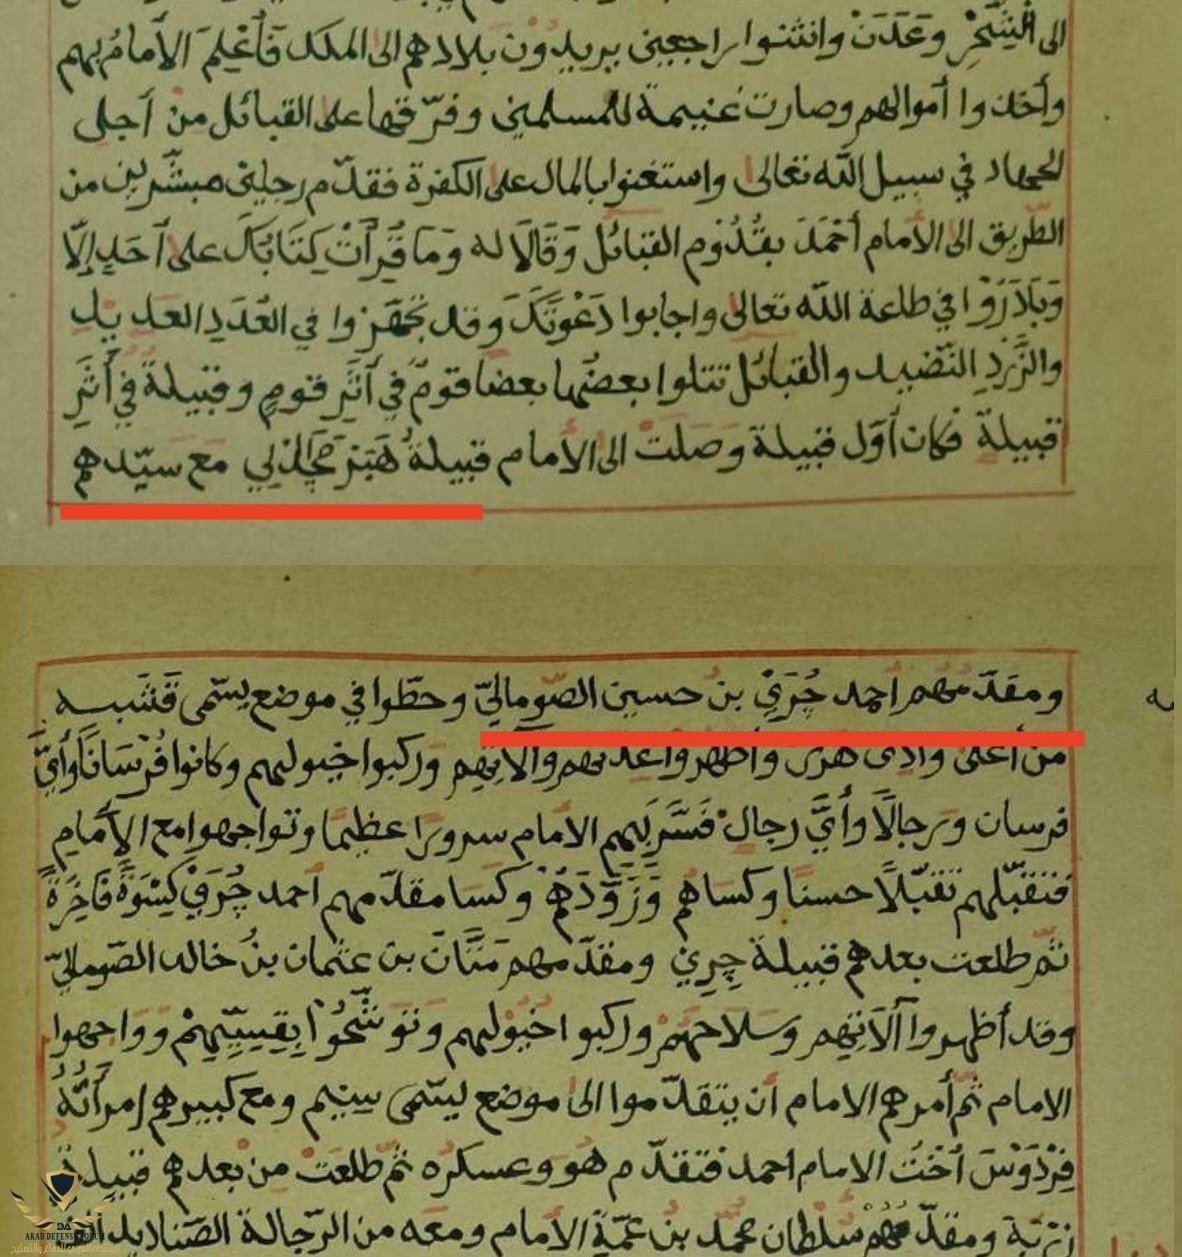 الى الشَّحْرِ وعَدَنَ وانثنوا راجعين يريدون بلادهم الى الملك فَأُعْلِمَ الأمامُ بهم
وأخذوا أموالهم وصارت غنيمة للمسلمين وفرّقها على القبائل من أجل
الجهاد في سبيل اللّه تعالى واستغنوا بالمال على الكفرة فقدّم رجلين مبشّرين من
الطّريق الى الأمام أحْمَدَ بقُدُوم القبائل وَقَالَا له وَمَا قَرَأْتَ كِتَابُكَ على أحَدٍ إلّا
وَبَادَرُوا في طاعة اللّه تعالى واجابوا دَعْوَتَكَ وقد تَجَهّزوا في العُدَدِ العَديدِ
والزَّرَدِ النّضيد والقبائل تتلوا بعضُها بعضا قومٌ في أَثَرِ قومٍ وقبيلةٌ في أَثَرِ
قبيلةٍ فكان أوّل قبيلة وَصَلَتْ الى الأمام قبيلةُ هَبَرْ مَجَّالدْلي مَع سيّدهم
ومقدّمُهم أحمد جُرَيْ بنُ حسين الصّوماليّ وحطّوا في موضع يسمّى قَشَبه
من أعلى وادى هَرَر وأظهروا عُدّتهم وآلاتِهم وركبوا خيولهم وكانوا فُرْسَانًا وأيَّ
فرسان ورجالًا وأيَّ رجالٍ فَسَّرَ بِهِم الأمام سرورًا عظيما وتواجهوا مع الأمامِ
فتقبّلهم تَقبّلًا حسنًا وكساهم وَزَوَّدَهُمْ وكسا مقدّمهم أحمد جُرَيْ كِسْوَةً فَاخِرَةً
ثمّ طلعت بعدهم قبيلة جِرِيْ ومقدّمهم مَتَّانَ بن عثمان بنُ خالد الصّوماليّ
وقد أظهروا آلَاتِهم وسَلاحَهُمْ واركبوا خُيُولهم وتَوَشَّحُوْا بِقِسِيِّهِمْ وَوَاجهوا
الامام ثمّ أمرهم الامام أن يتقدّموا الى موضع يسمّى سِيْم ومع كبيرهم إمرأتُهُ
فِرْدَوْسَ أُخْتُ الامام احمد فتقدّم هو وعسكره ثمّ طلعَتْ من بعدهم قبيلةُ
زرْبَة ومقدّمُهُمْ سُلْطان محمّد بنُ عمّةِ الأمام ومعه من الرّجالة الصّناديد
ARAB DEFENSE FORUM
المنتدى العربي للدفاع والتسليح